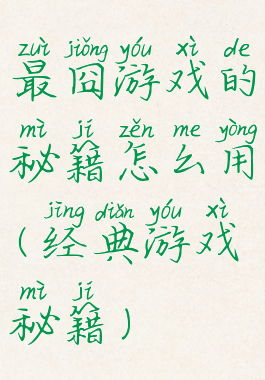 zuì jiǒng yóu xì de
最囧游戏的
mì jí zěn me yòng
秘籍怎么用
jīng diǎn yóu xì
(经典游戏
mì jí
秘籍)